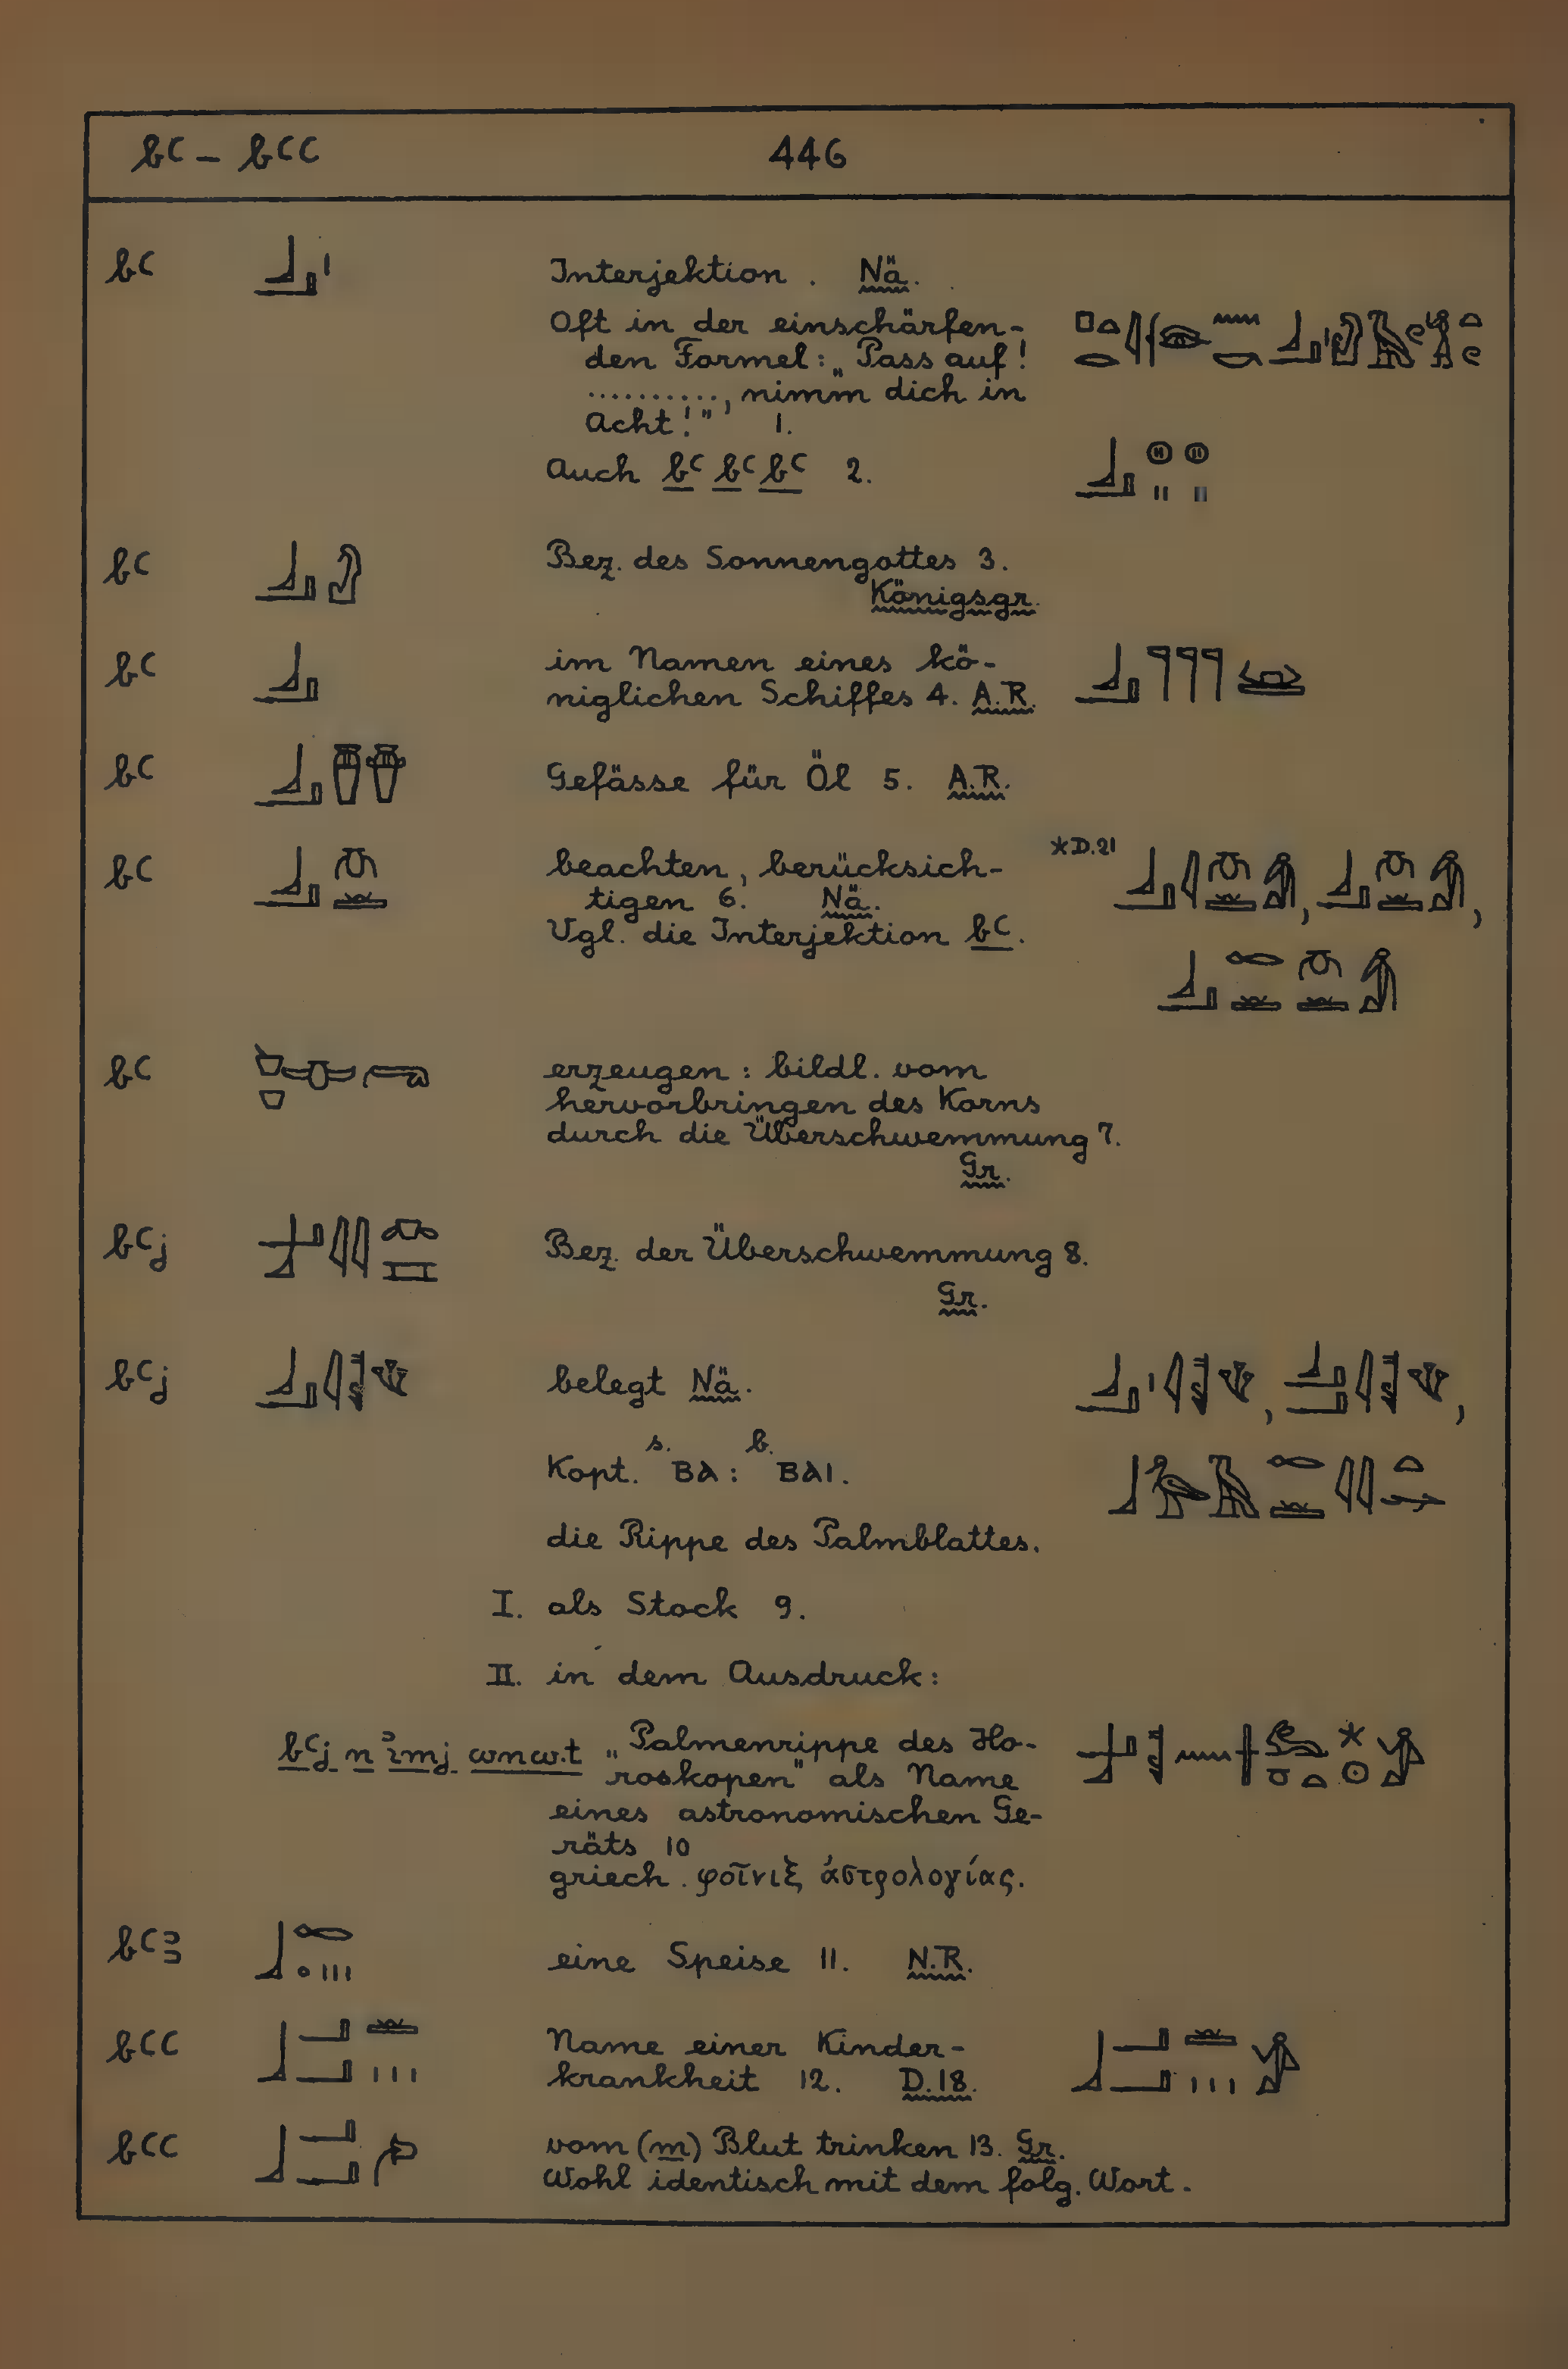 bꜥ – bꜥꜥ 446
bꜥ Interjektion. Nä.
Oft in der einschärfen-
den Formel: „Pass auf!
.........., nimm dich in
Acht!" 1.
Auch bꜥ bꜥ bꜥ 2.
bꜥ Bez. des Sonnengottes 3.
Königsgr.
bꜥ im Namen eines kö-
niglichen Schiffes 4. A.R.
bꜥ Gefässe für Öl 5. A.R.
bꜥ beachten, berücksich- *D.21
tigen 6. Nä.
Vgl. die Interjektion bꜥ.
bꜥ erzeugen: bildl. vom
hervorbringen des Korns
durch die Überschwemmung 7.
Gr.
bꜥj Bez. der Überschwemmung 8.
Gr.
bꜥj belegt Nä.
Kopt. s. ⲃⲁ: b. ⲃⲁⲓ.
die Rippe des Palmblattes.
I. als Stock 9.
II. in dem Ausdruck:
bꜥj n imj wnw.t „Palmenrippe des Ho-
roskopen" als Name
eines astronomischen Ge-
räts 10
griech. φοῖνιξ ἀστρολογίας.
bꜥꜣ eine Speise 11. N.R.
bꜥꜥ Name einer Kinder-
krankheit 12. D.18.
bꜥꜥ vom (m) Blut trinken 13. Gr.
Wohl identisch mit dem folg. Wort.